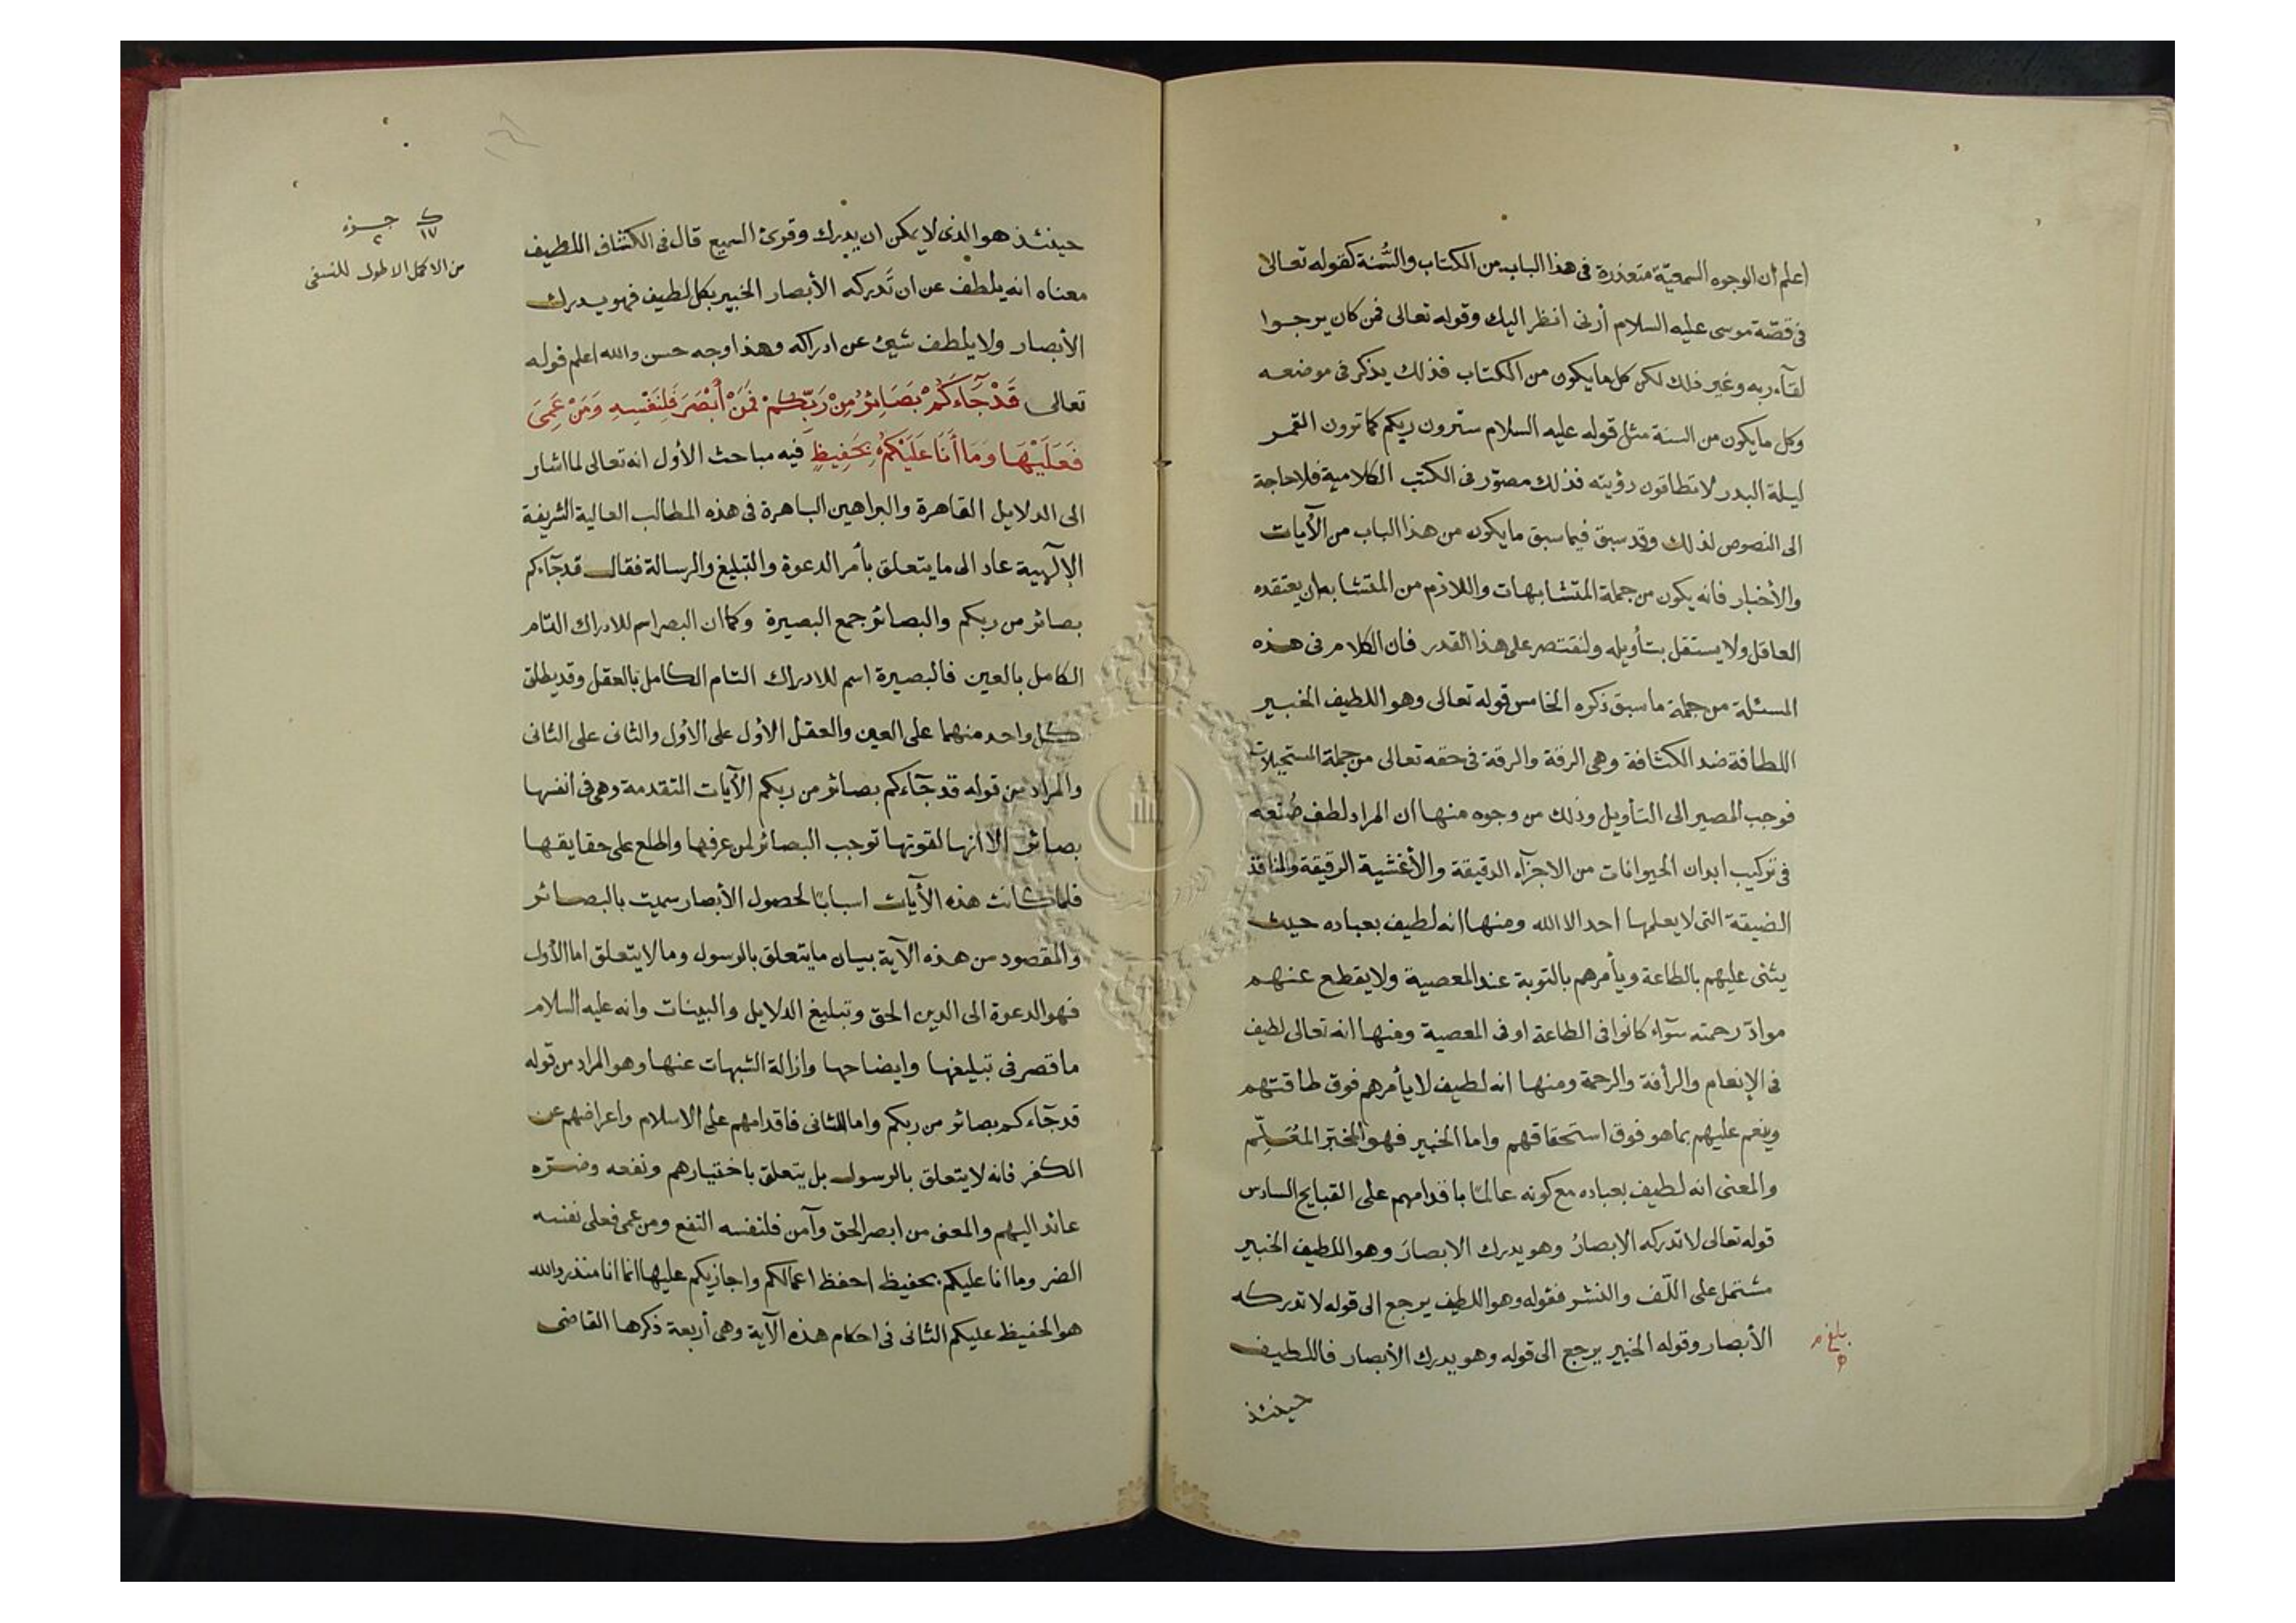 اعلم أن الوجوه السمعيّة متعذرة فى هذا الباب من الكتاب والسُّنة كقوله تعالى
فى قصّة موسى عليه السلام أرنى انظر اليك وقوله تعالى فمن كان يرجوا
لقآء ربه وغير ذلك لكن كل ما يكون من الكتاب فذلك يذكر فى موضعه
وكل ما يكون من السنة مثل قوله عليه السلام سترون ربكم كما ترون القمر
ليلة البدر لا تظامون رؤيته فذلك مصوّر فى الكتب الكلامية فلا حاجة
الى النصوص لذلك وقد سبق فيما سبق ما يكون من هذا الباب من الأيات
والأخبار فانه يكون من جملة المتشابهات واللازم من المتشابه ان يعتقده
العاقل ولا يستقل بتأويله ولنقتصر على هذا القدر فان الكلام فى هذه
المسئلة من جملة ما سبق ذكره الخامس قوله تعالى وهو اللطيف الخبير
اللطافة ضد الكثافة وهى الرقة والرقة فى حقه تعالى من جملة المستحيلات
فوجب المصير الى التأويل وذلك من وجوه منها ان المراد لطف صُنعه
فى تركيب ابدان الحيوانات من الاجزآء الدقيقة والأغشية الرقيقة والمنافذ
الضيقة التى لا يعلمها احد الا الله ومنها انه لطيف بعباده حيث
يثنى عليهم بالطاعة ويأمرهم بالتوبة عند المعصية ولا يقطع عنهم
موادّ رحمته سوآء كانوا فى الطاعة او فى المعصية ومنها انه تعالى لطيف
فى الإنعام والرأفة والرحمة ومنها انه لطيف لا يأمرهم فوق طاقتهم
وينعم عليهم بما هو فوق استحقاقهم واما الخبير فهو المخبر المعلّم
والمعنى انه لطيف بعباده مع كونه عالمًا باقدامهم على القبايح السادس
قوله تعالى لا تدركه الابصارُ وهو يدرك الابصارَ وهو اللطيف الخبير
مشتمل على اللّف والنشر فقوله وهو اللطيف يرجع الى قوله لا تدركه
الأبصار وقوله الخبير يرجع الى قوله وهو يدرك الأبصار فاللطيف
بلغ م
حينئذ
١٧ جزء ٢
من الاكمل الاطول للنسفى
حينئذ هو الذى لا يمكن ان يدرك وقوى السميع قال فى الكشاف اللطيف
معناه انه يلطف عن ان تَدركه الأبصار الخبير بكل لطيف فهو يدرك
الأبصار ولا يلطف شيئ عن ادراكه وهذا وجه حسن والله اعلم قوله
تعالى قَدْ جَآءَكُمْ بَصَائِرُ مِنْ رَبِّكُمْ فَمَنْ أَبْصَرَ فَلِنَفْسِهِ وَمَنْ عَمِىَ
فَعَلَيْهَا وَمَا أَنَا عَلَيْكُمْ بِحَفِيظٍ فيه مباحث الأول انه تعالى لما اشار
الى الدلايل القاهرة والبراهين الباهرة فى هذه المطالب العالية الشريفة
الإلٓهية عاد الى ما يتعلق بأمر الدعوة والتبليغ والرسالة فقال قد جآءكم
بصائر من ربكم والبصائر جمع البصيرة وكما ان البصر اسم للادراك التام
الكامل بالعين فالبصيرة اسم للادراك التام الكامل بالعقل وقد يطلق
كل واحد منهما على العين والعقل الأول على الأول والثانى على الثانى
والمراد من قوله قد جآءكم بصائر من ربكم الآيات المتقدمة وهى فى انفسها
بصائر الا انها لقوتها توجب البصائر لمن عرفها واطلع على حقايقها
فلما كانت هذه الأيات اسبابًا لحصول الأبصار سميت بالبصائر
والمقصود من هذه الآية بيان ما يتعلق بالرسول وما لا يتعلق اما الأول
فهو الدعوة الى الدين الحق وتبليغ الدلايل والبينات وانه عليه السلام
ما قصر فى تبليغها وايضاحها وازالة الشبهات عنها وهو المراد من قوله
قد جآءكم بصائر من ربكم واما الثانى فاقدامهم على الاسلام واعراضهم عن
الكفر فانه لا يتعلق بالرسول بل يتعلق باختيارهم ونفعه وضرّه
عائد اليهم والمعنى من ابصر الحق وآمن فلنفسه النفع ومن عمى فعلى نفسه
الضر وما انا عليكم بحفيظ احفظ اعمالكم واجازيكم عليها انما انا منذر والله
هو الحفيظ عليكم الثانى فى احكام هذه الآية وهى أربعة ذكرها القاضى